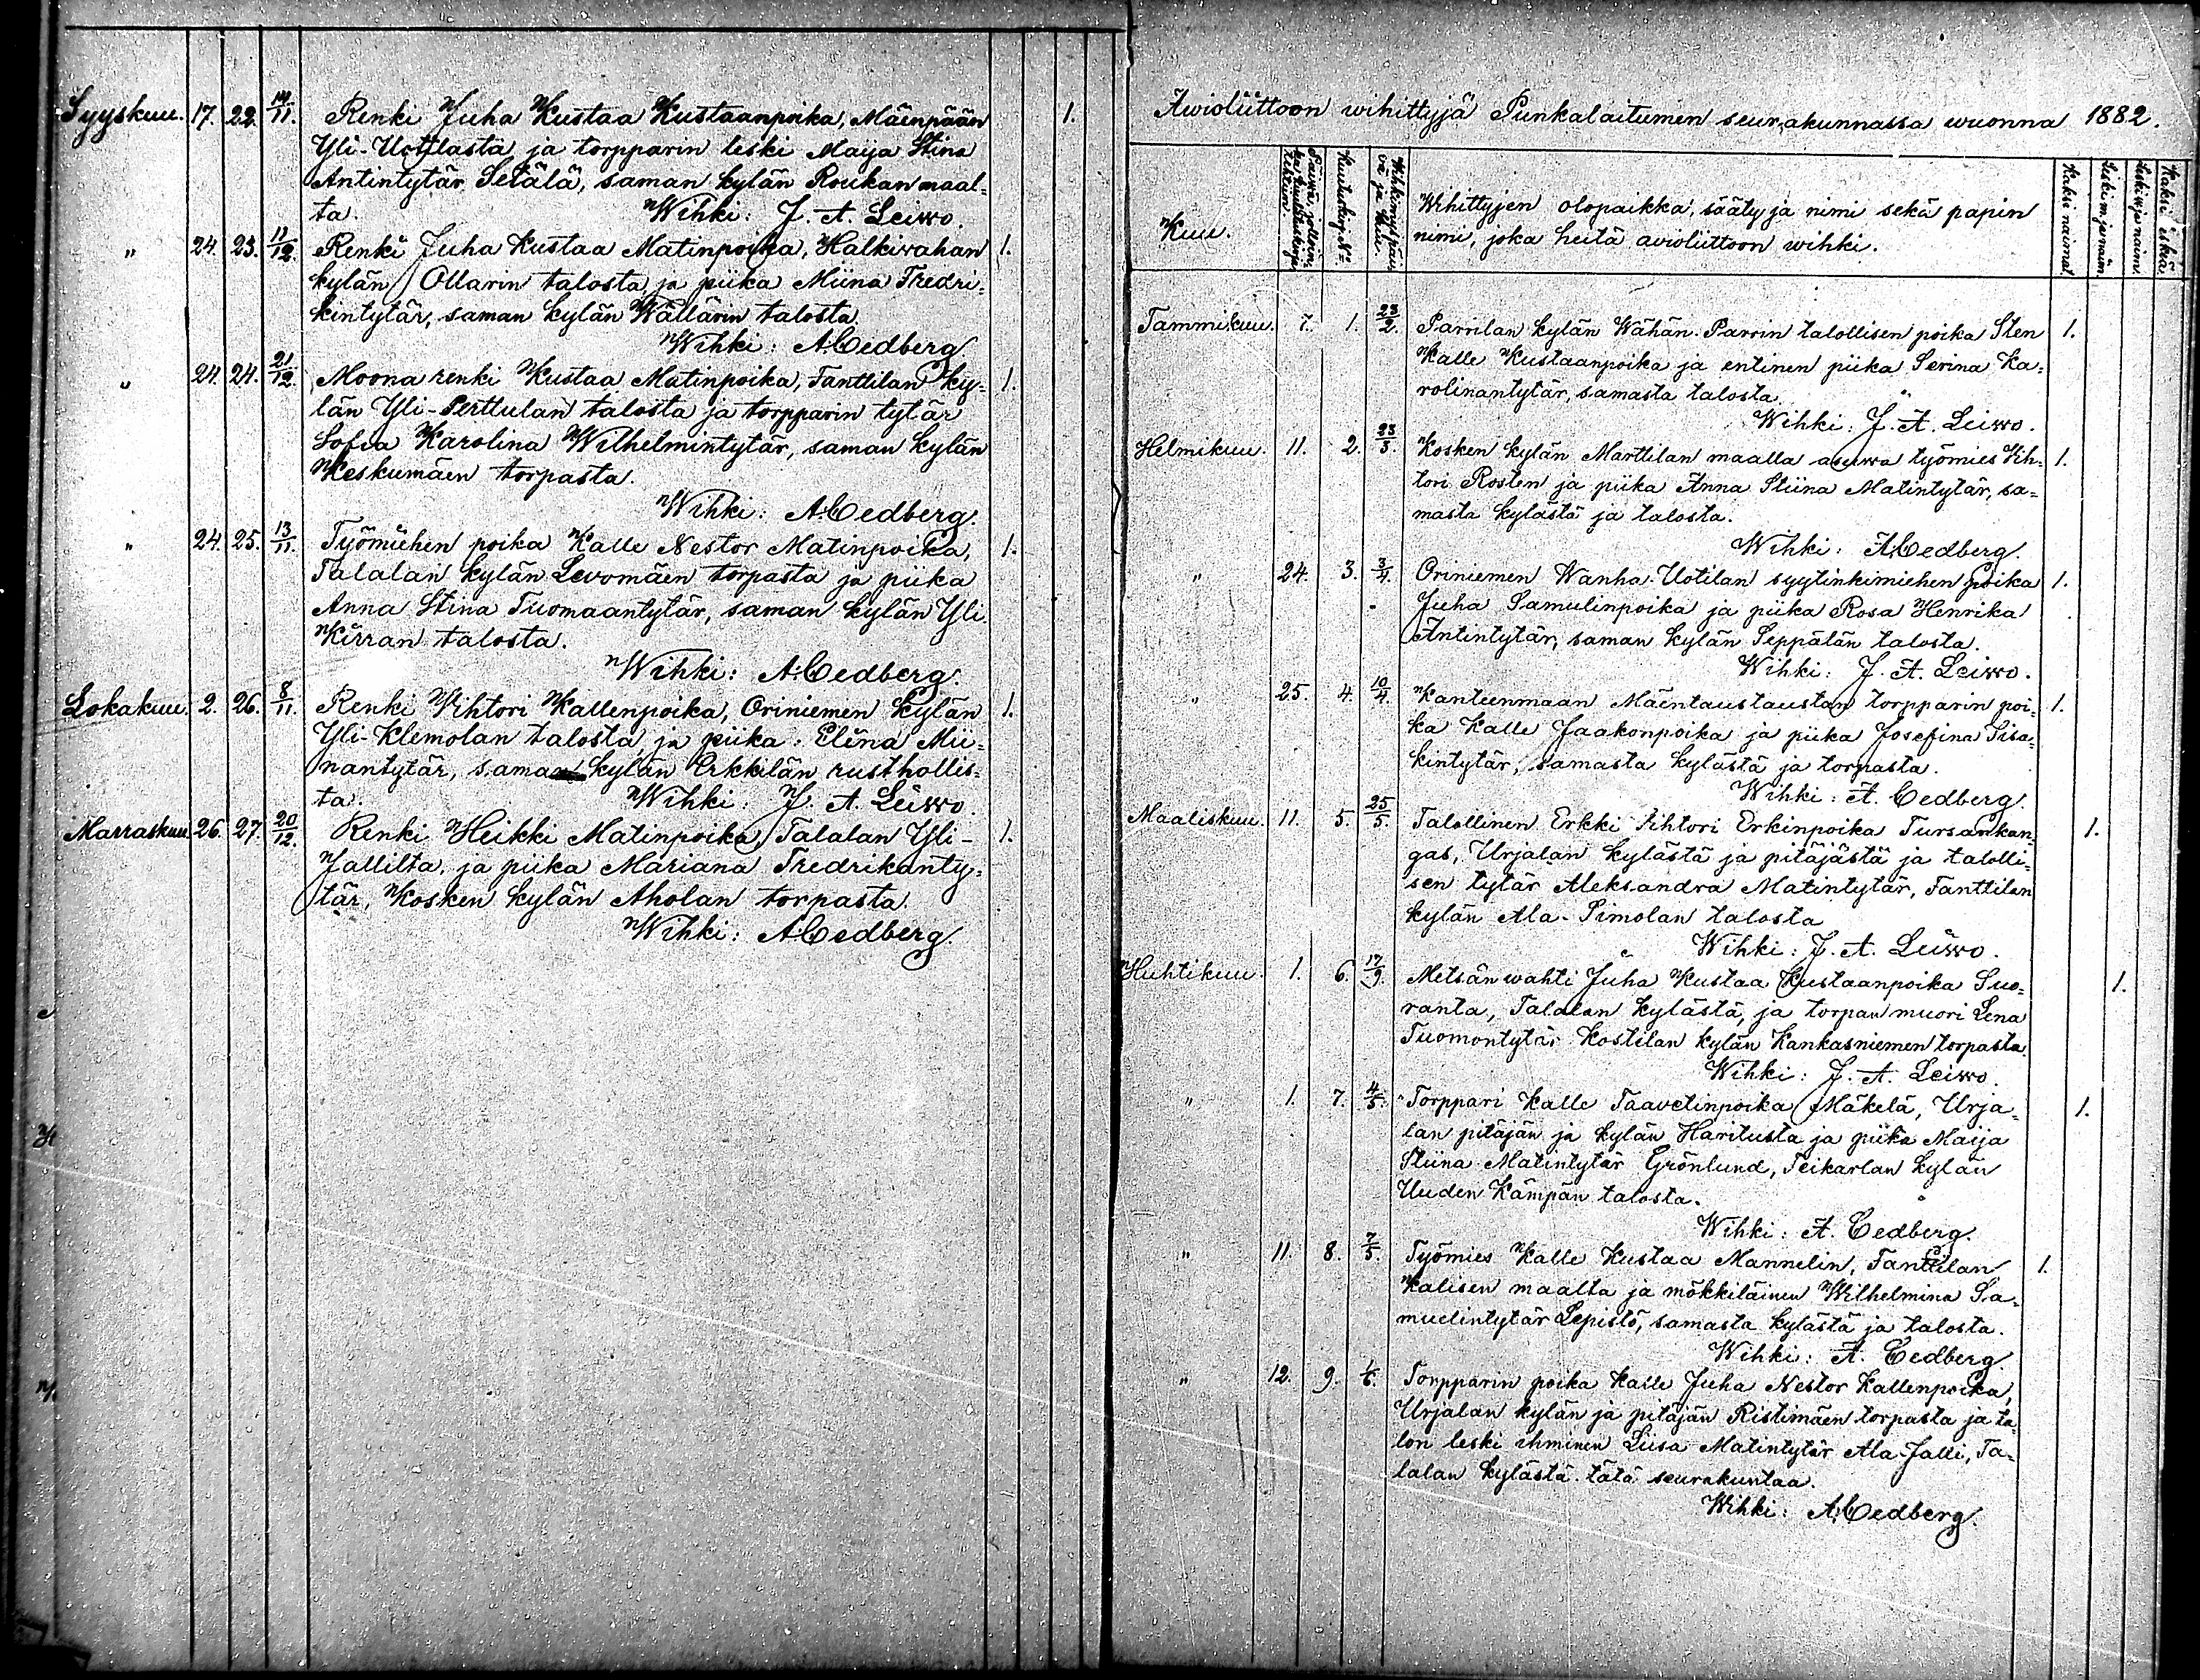 Syyskuu. 17. 22. 14/11. Renki Juha Kustaa Kustaanpoika, Mäenpään 1.
Yli-Uotilasta ja torpparin leski Maija Stina
Antintytär Setälä, saman kylän Roukan maal=
ta. Wihki: J. A. Leiwo.
" 24. 23. 11/12. Renki Juha Kustaa Matinpoika, Halkiwahan 1.
kylän Ollarin talosta, ja piika Miina Fredri=
kintytär, saman kylän Wällärin talosta.
Wihki: A. Cedberg.
" 24. 24. 21/12. Moona renki Kustaa Matinpoika, Tanttilan ky= 1.
län Yli-Perttulan talosta ja torpparin tytär
Sofia Karolina Wilhelmintytär, saman kylän
Keskumäen torpasta.
Wihki: A. Cedberg.
" 24. 25. 13/11. Työmiehen poika Kalle Nestor Matinpoika, 1.
Talalan kylän Levomäen torpasta ja piika
Anna Stina Tuomaantytär, saman kylän Yli
Kirran talosta.
Wihki: A. Cedberg.
Lokakuu. 2. 26. 8/11. Renki Wihtori Kallenpoika, Oriniemen kylän 1.
Yli-Klemolan talosta, ja piika: Elina Mii=
nantytär, saman kylän Erkkilän rusthollis=
ta. Wihki: J. A. Leiwo.
Marraskuu. 26. 27. 20/12. Renki Heikki Matinpoika, Talalan Yli- 1.
Jallilta, ja piika Mariana Fredrikanty=
tär, Kosken kylän Aholan torpasta.
Wihki: A. Cedberg.
Awioliittoon wihittyjä Punkalaitumen seurakunnassa wuonna 1882.
Kuu.
Kuulutuskirj. No
Wihkimyspäi=
vä ja kuu.
Wihittyjen olopaikka, sääty ja nimi sekä papin
nimi, joka heitä avioliittoon wihki.
Kaksi naimat.
Leski m. ja naim.
Leski w. ja naim.
Kaksi leskeä
Tammikuu. 7. 1. 23/2. Parrilan kylän Wähän-Parrin talollisen poika Sten 1.
Kalle Kustaanpoika ja entinen piika Serina Ka=
rolinantytär, samasta talosta.
Wihki: J. A. Leiwo.
Helmikuu. 11. 2. 23/3. Kosken kylän Marttilan maalla asuwa työmies Wih= 1.
tori Rosten ja piika Anna Stiina Matintytär, sa=
masta kylästä ja talosta.
Wihki: A. Cedberg.
" 24. 3. 3/4. Oriniemen Wanha-Uotilan syytinkimiehen poika 1.
Juha Samulinpoika ja piika Rosa Henrika
Antintytär, saman kylän Seppälän talosta.
Wihki: J. A. Leiwo.
" 25. 4. 10/4. Kanteenmaan Mäentaustaustan torpparin poi= 1.
ka Kalle Jaakonpoika ja piika Josefina Iisa=
kintytär, samasta kylästä ja torpasta.
Wihki: A. Cedberg.
Maaliskuu. 11. 5. 25/5. Talollinen Erkki Wihtori Erkinpoika Tursankan= 1.
gas, Urjalan kylästä ja pitäjästä ja talolli=
sen tytär Aleksandra Matintytär, Tanttilan
kylän Ala-Pimolan talosta
Wihki: J. A. Leiwo.
Huhtikuu. 1. 6. 17/9. Metsänwahti Juha Kustaa Kustaanpoika Suo= 1.
ranta, Talalan kylästä, ja torpan muori Lena
Tuomontytär Kostilan kylän Kankasniemen torpasta
Wihki: J. A. Leiwo.
" 1. 7. 4/5. Torppari Kalle Taavetinpoika Mäkelä, Urja= 1.
lan pitäjän ja kylän Haritusta ja piika Maija
Stiina Matintytär Grönlund, Teikarlan kylän
Uuden Kämpän talosta.
Wihki: A. Cedberg.
" 11. 8. 7/5. Työmies Kalle Kustaa Mannelin, Tanttilan 1.
Kalisen maalta ja mökkiläinen Wilhelmina Sa=
muelintytär Lepistö, samasta kylästä ja talosta.
Wihki: A. Cedberg.
" 12. 9. 1/6. Torpparin poika Kalle Juha Nestor Kallenpoika,
Urjalan kylän ja pitäjän Ristimäen torpasta ja ta
lon leski ihminen Liisa Matintytär Ala-Jalli, Ta=
lalan kylästä tätä seurakuntaa.
Wihki: A. Cedberg.